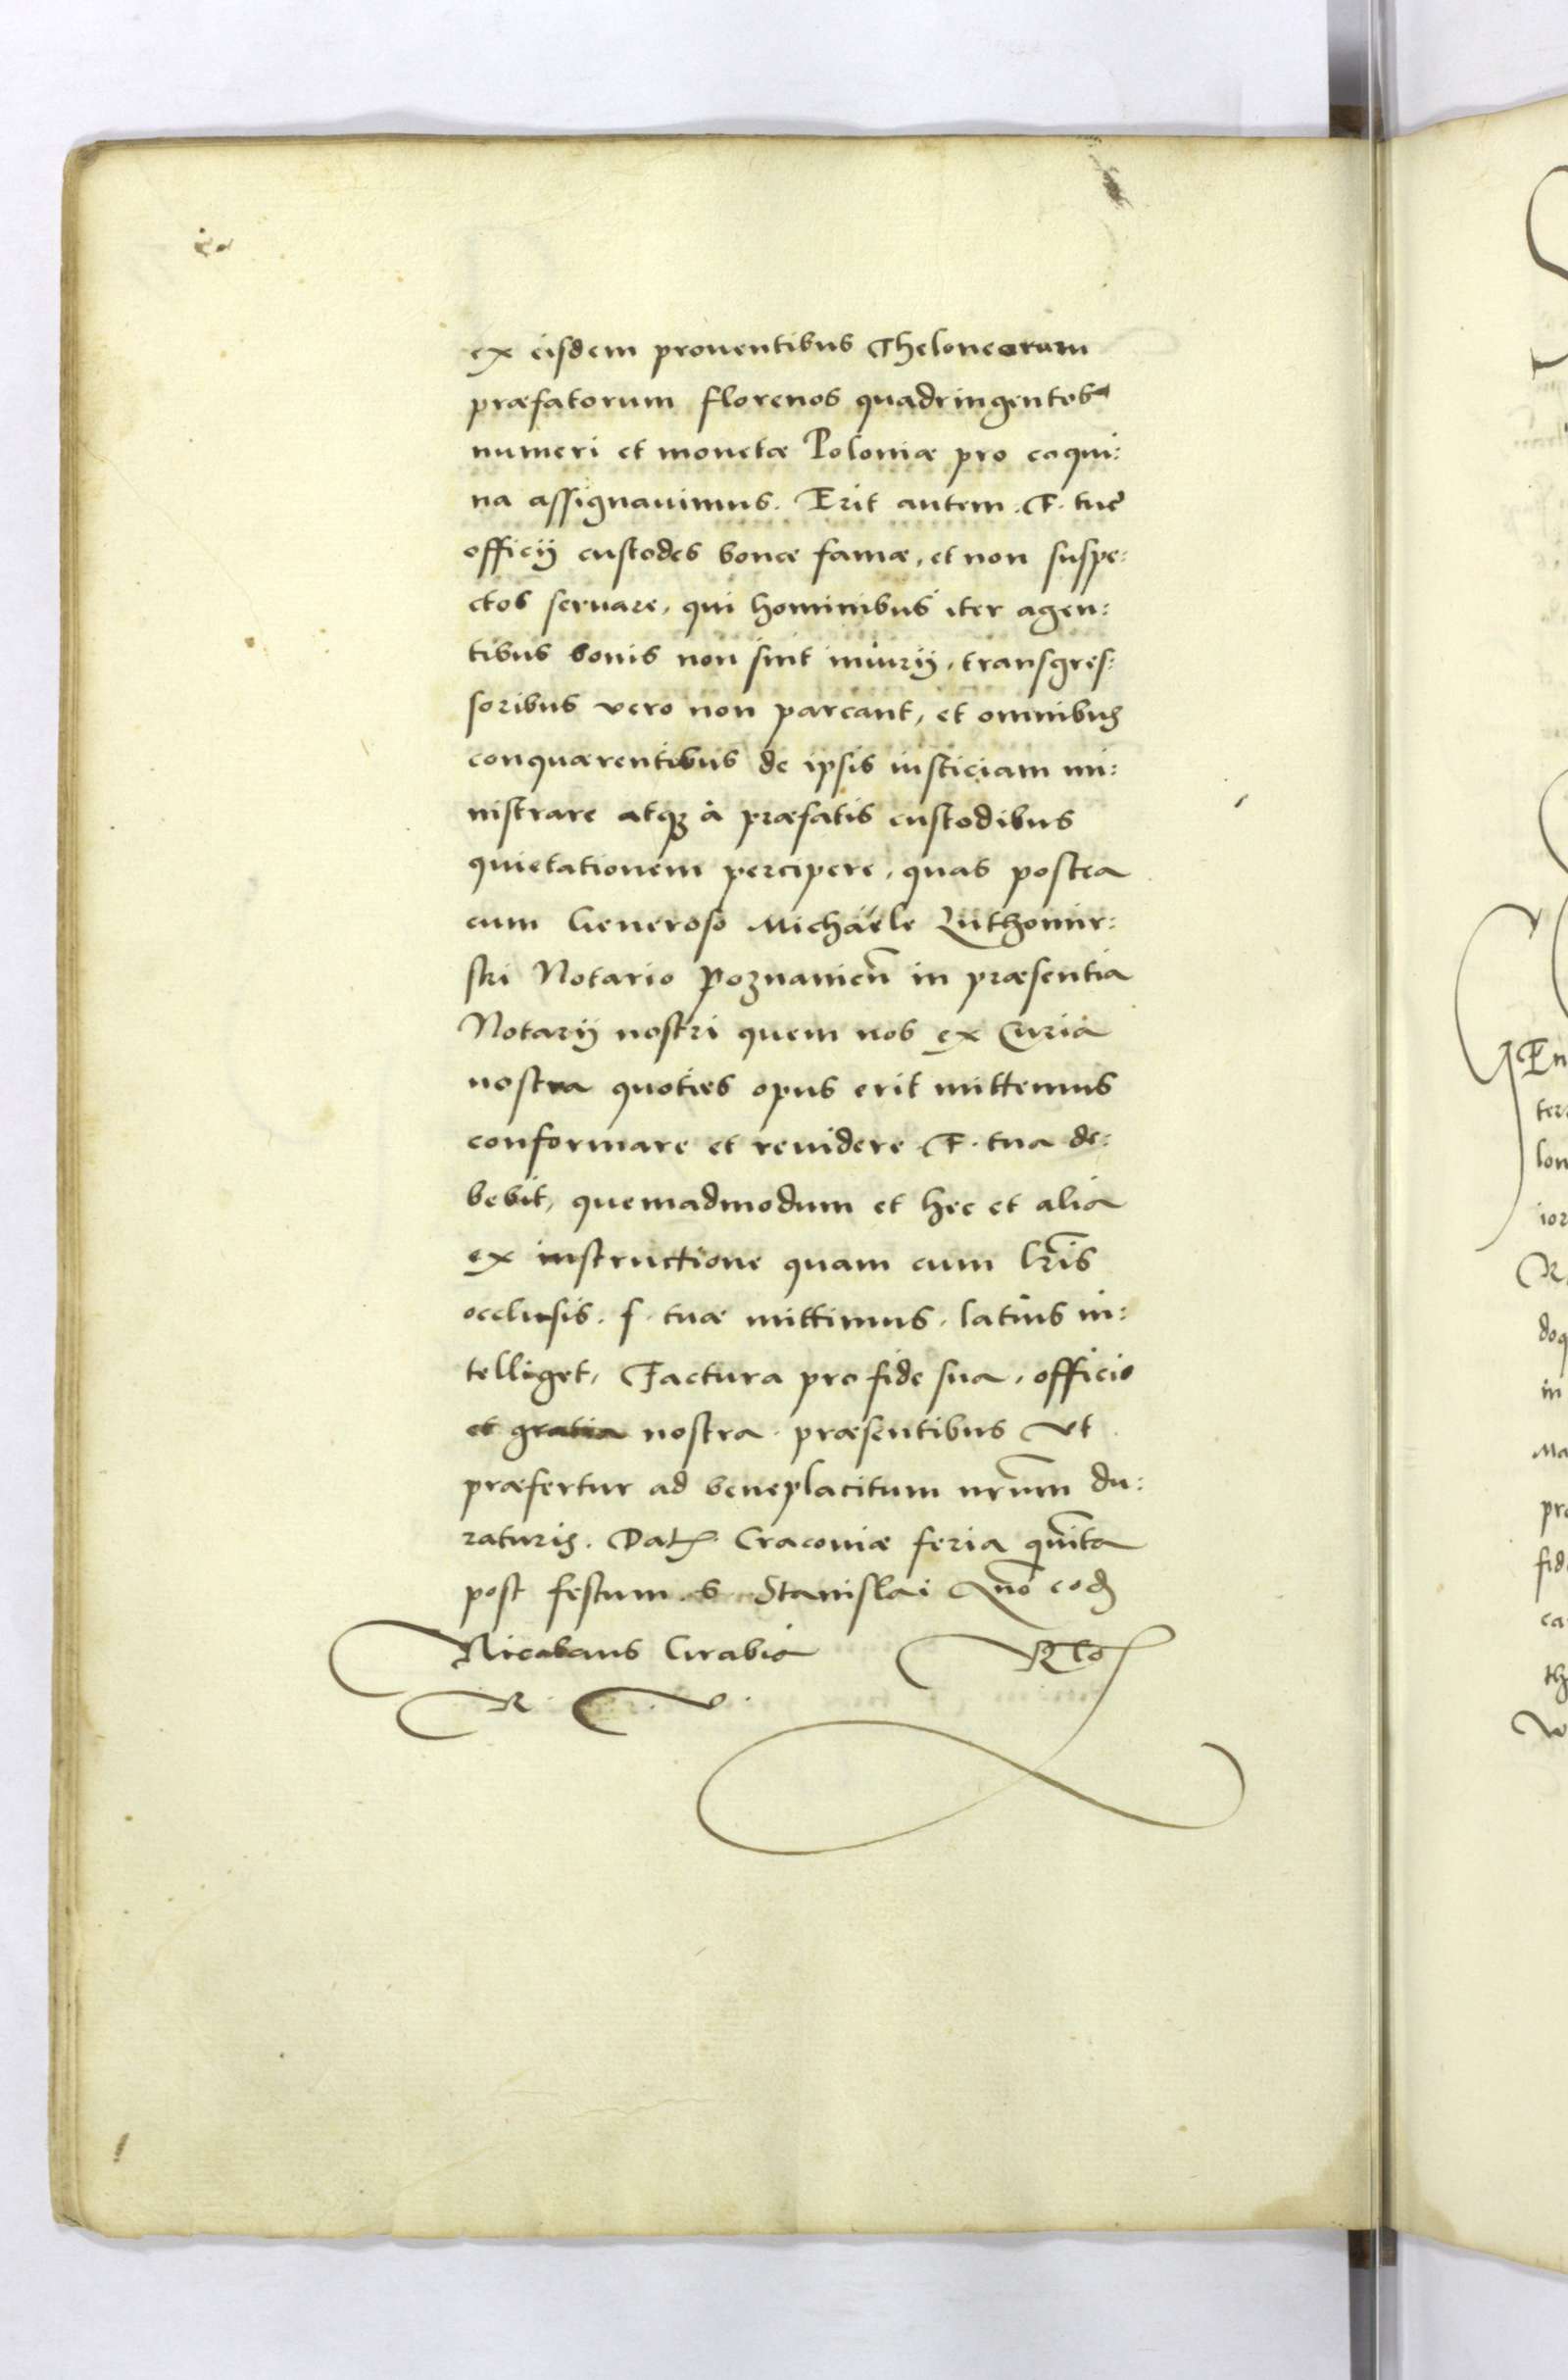 ex eisdem proventibus Theloneorum
præfatorum florenos quadringentos
numeri et monetæ Poloniæ pro coqui:
na assignavimus. Erit autem. F. tuę
officij custodes bonæ famæ, et non suspe:
ctos servare, qui hominibus iter agen:
tibus bonis non sint iniurij, transgres:
soribus vero non parcant, et omnibus
conquærentibus de ipsis iusticiam mi:
nistrare atqꝫ à præfatis custodibus
quietationem percipere, quas postea
cum Generoso Michaële Luthomir:
ski Notario Poznanieñ in præsentia
Notarij nostri quem nos ex Curia
nostra quoties opus erit mittemus
conformare et revidere F. tua de:
bebit, quemadmodum et hec et alia
ex instructione quam cum lr̃is
occlusis. f. tuæ mittimus. latius in:
telliget, Factura pro fide sua, officio
et gratia nostra. præsentibus ut
præfertur ad beneplacitum nr̃um du:
raturis. Dat. Cracoviæ feria quinta
post festum. S Stanislai Año eod
Nicolaus Grabia
R. V.